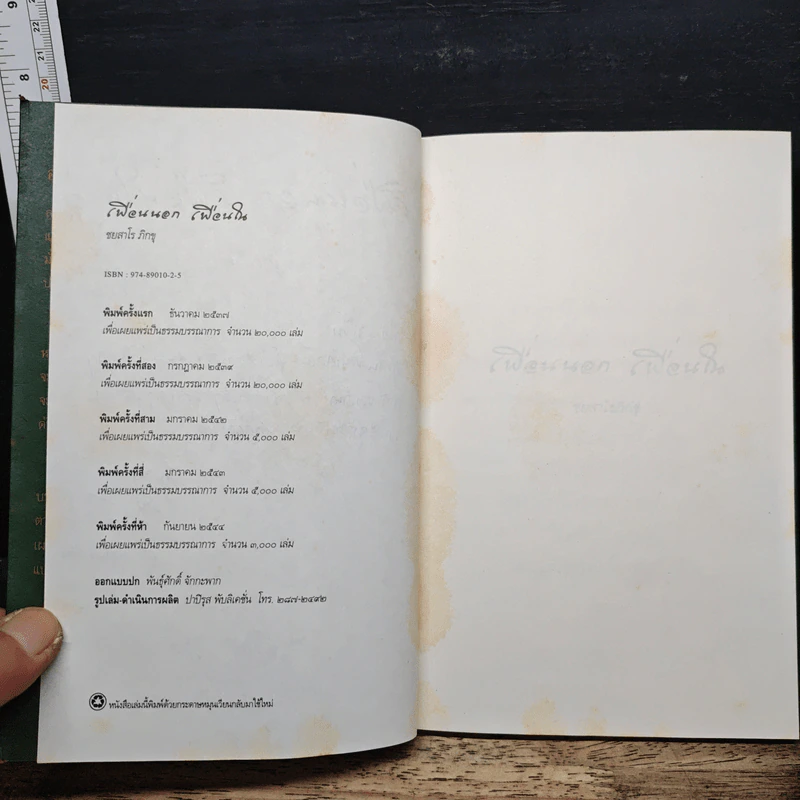 เพื่อนนอก เพื่อนใน
ชยสาโร ภิกขุ
ISBN : 974-89010-2-5
พิมพ์ครั้งแรก ธันวาคม ๒๕๓๗
เพื่อเผยแพร่เป็นธรรมบรรณาการ จำนวน ๒๐,๐๐๐ เล่ม
พิมพ์ครั้งที่สอง กรกฎาคม ๒๕๓๙
เพื่อเผยแพร่เป็นธรรมบรรณาการ จำนวน ๒๐,๐๐๐ เล่ม
พิมพ์ครั้งที่สาม มกราคม ๒๕๔๒
เพื่อเผยแพร่เป็นธรรมบรรณาการ จำนวน ๕,๐๐๐ เล่ม
พิมพ์ครั้งที่สี่ มกราคม ๒๕๔๓
เพื่อเผยแพร่เป็นธรรมบรรณาการ จำนวน ๕,๐๐๐ เล่ม
พิมพ์ครั้งที่ห้า กันยายน ๒๕๔๔
เพื่อเผยแพร่เป็นธรรมบรรณาการ จำนวน ๓,๐๐๐ เล่ม
ออกแบบปก พันธุ์ศักดิ์ จักกะพาก
รูปเล่ม-ดำเนินการผลิต ปาปิรุส พับลิเคชั่น โทร. ๒๘๗-๒๔๙๒
หนังสือเล่มนี้พิมพ์ด้วยกระดาษหมุนเวียนกลับมาใช้ใหม่
เพื่อนนอก เพื่อนใน
9
8
22
21
20